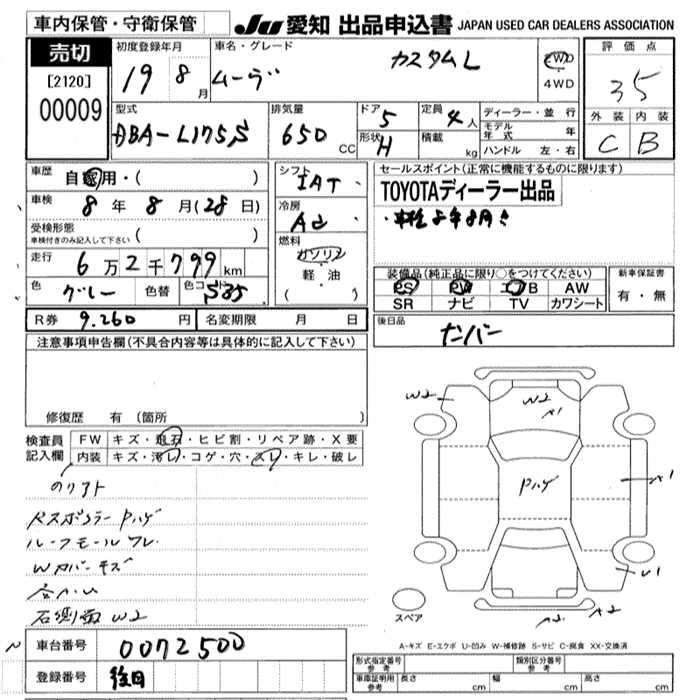 車内保管・守衛保管
Ju 愛知 出品申込書 JAPAN USED CAR DEALERS ASSOCIATION
売切
[2120]
00009
初度登録年月
19 8月
車名・グレード
ムーヴ カスタムL
2WD
4WD
評価点
35
外装 内装
C B
型式
DBA-L175S
排気量
650 CC
ドア 5
形状 H
定員 4人
積載 kg
ディーラー・並行
モデル年式 年
ハンドル 左・右
車歴 自家用・( )
車検 8年8月(28日)
受検形態
車検付きのみ記入して下さい ( )
走行 6万2千799km
色 グレー 色替 色コード S35
シフト
IAT
冷房
AC
燃料
ガソリン
軽・油
( )
セールスポイント(正常に機能するものに限ります)
TOYOTAディーラー出品
装備品(純正品に限り○をつけてください)
PS PW エアB AW
SR ナビ TV カワシート
新車保証書
有・無
R券 9.260円 名変期限 月 日
後日品
ナンバー
注意事項申告欄(不具合内容等は具体的に記入して下さい)
修復歴 有 (箇所 )
検査員記入欄
FW キズ・飛石・ヒビ割・リペア跡・X要
内装 キズ・汚レ・コゲ・穴・スレ・キレ・破レ
ルーフモール
W2
W2
A1
Pハゲ
A1
U1
A2 A2
スペア
A-キズ E-エクボ U-凹み W-補修跡 S-サビ C-腐食 XX-交換済
車台番号 0072500
登録番号
形式指定番号 参考
類別区分番号 参考
車庫証明用 参考 長さ cm 幅 cm 高さ cm